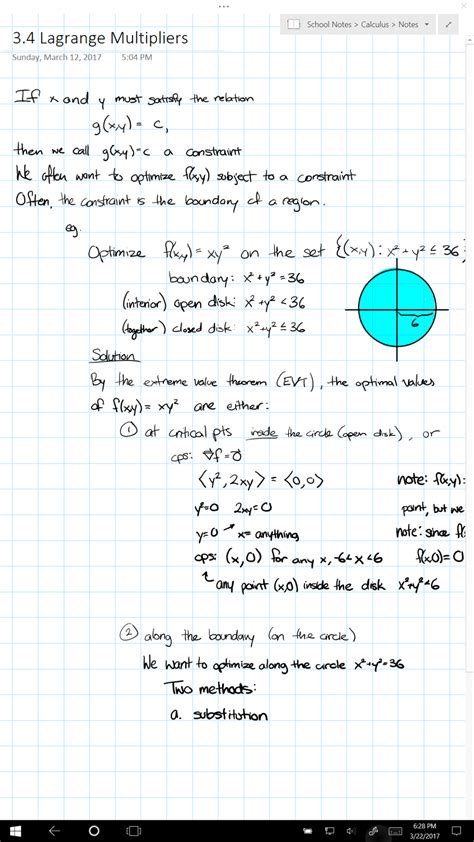 School Notes > Calculus > Notes
3.4 Lagrange Multipliers
Sunday, March 12, 2017 5:04 PM
If x and y must satisfy the relation
g(x,y) = c,
then we call g(x,y)=c a constraint
We often want to optimize f(x,y) subject to a constraint
Often, the constraint is the boundary of a region.
eg.
Optimize f(x,y) = xy² on the set {(x,y): x²+y² ≤ 36
boundary: x²+y² = 36
(interior) open disk: x²+y² < 36
(together) closed disk: x²+y² ≤ 36
6
Solution
By the extreme value theorem (EVT), the optimal values
of f(x,y) = xy² are either:
① at critical pts inside the circle (open disk), or
cps: ∇f = 0⃗
⟨y², 2xy⟩ = ⟨0,0⟩
note: f(x,y)=
y²=0 2xy=0
point, but we
y=0 → x= anything
note: since f(
cps: (x,0) for any x, -6<x<6
f(x,0)=0
any point (x,0) inside the disk x²+y²<6
② along the boundary (on the circle)
We want to optimize along the circle x²+y²=36
Two methods:
a. substitution
6:28 PM
3/22/2017